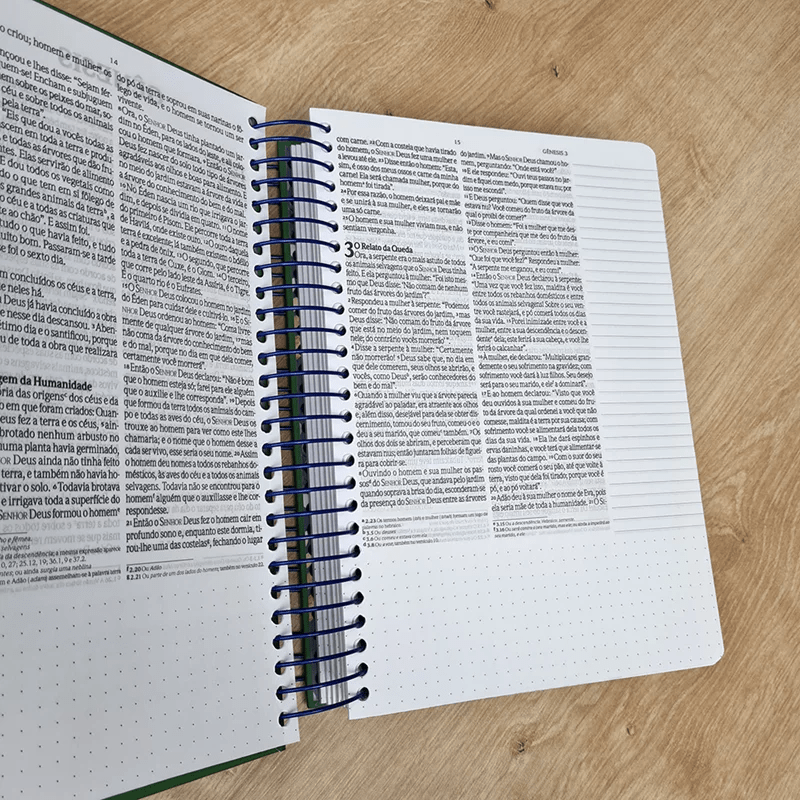 14
o criou; homem e mulher os
nçoou e lhes disse: "Sejam fér-
uem-se! Encham e subjuguem
em sobre os peixes do mar, so-
céu e sobre todos os animais
pela terra".
"Eis que dou a vocês todas as
ascem em toda a terra e produ-
e todas as árvores que dão fru-
ntes. Elas servirão de alimento
E dou todos os vegetais como
do o que tem em si fôlego de
s grandes animais da terra, a
o céu e a todas as criaturas que
te ao chão". E assim foi.
tudo o que havia feito, e tudo
uito bom. Passaram-se a tarde
e foi o sexto dia.
m concluídos os céus e a terra,
e neles há.
a Deus já havia concluído a obra
e nesse dia descansou. Aben-
étimo dia e o santificou, porque
u de toda a obra que realizara
gem da Humanidade
ória das origens dos céus e da
o em que foram criados: Quan-
eus fez a terra e os céus, ain-
brotado nenhum arbusto no
uma planta havia germinado,
HOR Deus ainda não tinha feito
terra, e também não havia ho-
tivar o solo. Todavia brotava
e irrigava toda a superfície do
SENHOR Deus formou o homem
do pó da terra e soprou em suas narinas o fô-
lego de vida, e o homem se tornou um ser
vivente.
Ora, o SENHOR Deus tinha plantado um jar-
dim no Éden, para os lados do leste, e ali colo-
cou o homem que formara. Então o SENHOR
Deus fez nascer do solo todo tipo de árvores
agradáveis aos olhos e boas para alimento.
da árvore do conhecimento do bem e do mal.
No Éden nascia um rio que irrigava o jar-
dim, e depois se dividia em quatro. O nome
do primeiro é Pisom. Ele percorre toda a terra
de Havilá, onde existe ouro. O ouro daquela
terra é excelente; lá também existem o bdélio
e a pedra de ônix. O segundo, que percorre
toda a terra de Cuxe, é o Giom. O terceiro,
que corre pelo lado leste da Assíria, é o Tigre.
E o quarto rio é o Eufrates.
O SENHOR Deus colocou o homem no jardim
do Éden para cuidar dele e cultivá-lo. E o
SENHOR Deus ordenou ao homem: "Coma livre-
mente de qualquer árvore do jardim, mas não
coma da árvore do conhecimento do bem e
do mal, porque no dia em que dela comer,
certamente você morrerá".
18 Então o SENHOR Deus declarou: "Não é bom
que o homem esteja só; farei para ele alguém
que o auxilie e lhe corresponda". Depois
que formou da terra todos os animais do cam-
po e todas as aves do céu, o SENHOR Deus os
trouxe ao homem para ver como este lhes
chamaria; e o nome que o homem desse
a cada ser vivo, esse seria o seu nome. Assim
o homem deu nomes a todos os rebanhos do-
mésticos, às aves do céu e a todos os animais
selvagens. Todavia não se encontrou para o
homem alguém que o auxiliasse e lhe cor-
respondesse.
21 Então o SENHOR Deus fez o homem cair em
profundo sono e, enquanto este dormia, ti-
rou-lhe uma das costelas, fechando o lugar
2.20 Ou Adão
2.21 Ou parte de um dos lados do homem; também no versículo 22.
15
GÊNESIS 3
com carne. 22 Com a costela que havia tirado
do homem, o SENHOR Deus fez uma mulher e
a levou até ele. 23 Disse então o homem: "Esta,
sim, é osso dos meus ossos e carne da minha
carne! Ela será chamada mulher, porque do
homem foi tirada".
24 Por essa razão, o homem deixará pai e mãe
e se unirá à sua mulher, e eles se tornarão
uma só carne.
25 O homem e sua mulher viviam nus, e não
sentiam vergonha.
3 O Relato da Queda
Ora, a serpente era o mais astuto de todos
os animais selvagens que o SENHOR Deus tinha
feito. E ela perguntou à mulher: "Foi isto mes-
mo que Deus disse: 'Não comam de nenhum
fruto das árvores do jardim'?"
2 Respondeu a mulher à serpente: "Podemos
comer do fruto das árvores do jardim, 3 mas
Deus disse: 'Não comam do fruto da árvore
que está no meio do jardim, nem toquem
nele; do contrário vocês morrerão' ".
4 Disse a serpente à mulher: "Certamente
não morrerão! 5 Deus sabe que, no dia em
que dele comerem, seus olhos se abrirão, e
vocês, como Deus, serão conhecedores do
bem e do mal".
6 Quando a mulher viu que a árvore parecia
agradável ao paladar, era atraente aos olhos
e, além disso, desejável para dela se obter dis-
cernimento, tomou do seu fruto, comeu-o e o
deu a seu marido, que comeu também. 7 Os
olhos dos dois se abriram, e perceberam que
estavam nus; então juntaram folhas de figuei-
ra para cobrir-se.
8 Ouvindo o homem e sua mulher os pas-
sos do SENHOR Deus, que andava pelo jardim
quando soprava a brisa do dia, esconderam-se
da presença do SENHOR Deus entre as árvores
do jardim. 9 Mas o SENHOR Deus chamou o ho-
mem, perguntando: "Onde está você?"
10 E ele respondeu: "Ouvi teus passos no jar-
dim e fiquei com medo, porque estava nu; por
isso me escondi".
11 E Deus perguntou: "Quem disse que você
estava nu? Você comeu do fruto da árvore da
qual o proibi de comer?"
12 Disse o homem: "Foi a mulher que me des-
te por companheira que me deu do fruto da
árvore, e eu comi".
13 O SENHOR Deus perguntou então à mulher:
"Que foi que você fez?" Respondeu a mulher:
"A serpente me enganou, e eu comi".
14 Então o SENHOR Deus declarou à serpente:
"Uma vez que você fez isso, maldita é você
entre todos os rebanhos domésticos e entre
todos os animais selvagens! Sobre o seu ven-
tre você rastejará, e pó comerá todos os dias
da sua vida. 15 Porei inimizade entre você e a
mulher, entre a sua descendência e o descen-
dente dela; este ferirá a sua cabeça, e você lhe
ferirá o calcanhar".
16 À mulher, ele declarou: "Multiplicarei gran-
demente o seu sofrimento na gravidez; com
sofrimento você dará à luz filhos. Seu desejo
será para o seu marido, e ele a dominará".
17 E ao homem declarou: "Visto que você
deu ouvidos à sua mulher e comeu do fruto
da árvore da qual ordenei a você que não
comesse, maldita é a terra por sua causa; com
sofrimento você se alimentará dela todos os
dias da sua vida. 18 Ela lhe dará espinhos e
ervas daninhas, e você terá que alimentar-se
das plantas do campo. 19 Com o suor do seu
rosto você comerá o seu pão, até que volte à
terra, visto que dela foi tirado; porque você é
pó, e ao pó voltará".
20 Adão deu à sua mulher o nome de Eva, pois
ela seria mãe de toda a humanidade. 21 O SE-